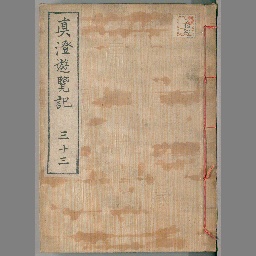 真澄遊覧記 三十三